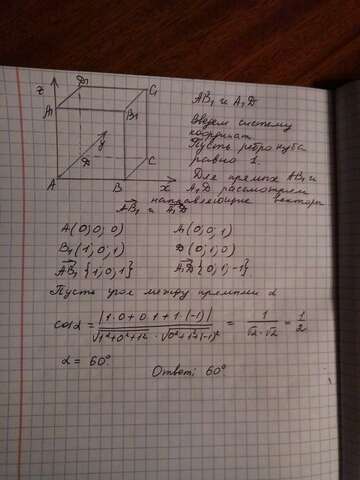 z
D₁
C₁
A₁
B₁
y
D
C
A
B
x
AB₁ и A₁D
Введём систему
координат
Пусть ребро куба
равно 1.
Для прямых AB₁ и
A₁D рассмотрим
направляющие векторы
AB₁ и A₁D
A(0; 0; 0) A₁(0; 0; 1)
B₁(1; 0; 1) D(0; 1; 0)
AB₁ {1; 0; 1} A₁D {0; 1; -1}
Пусть угол между прямыми α
cosα = |1·0+0·1+1·(-1)| / √1²+0²+1² · √0²+1²+(-1)² = 1 / √2·√2 = 1/2
α = 60°
Ответ: 60°